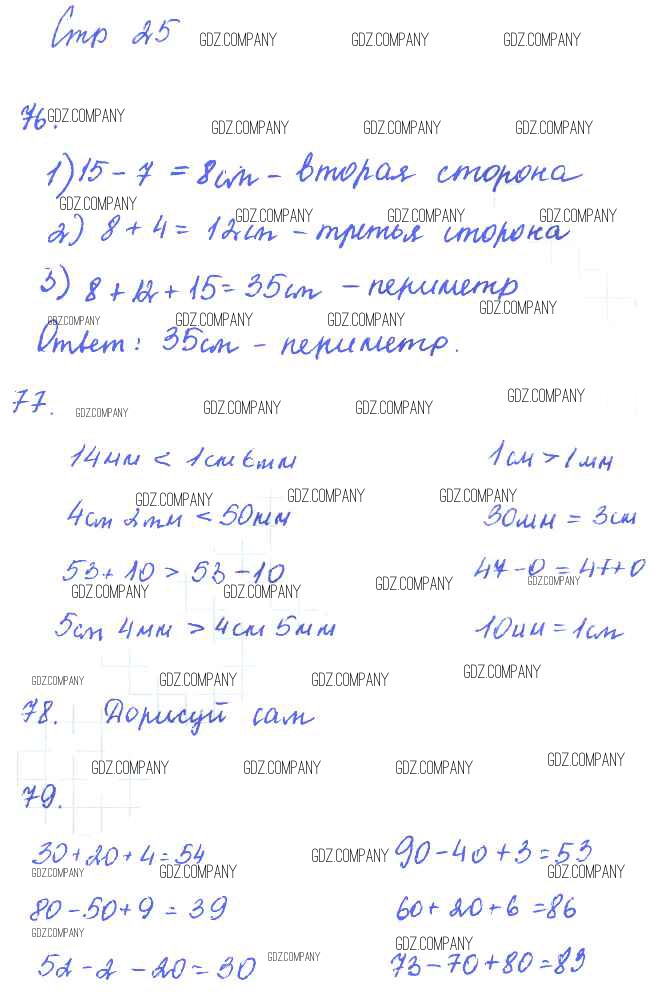 Стр 25
76.
1) 15 - 7 = 8 см - вторая сторона
2) 8 + 4 = 12 см - третья сторона
3) 8 + 12 + 15 = 35 см - периметр
Ответ: 35 см - периметр.
77.
14 мм < 1 см 6 мм 1 см > 1 мм
4 см 2 мм < 50 мм 30 мм = 3 см
53 + 10 > 53 - 10 47 - 0 = 47 + 0
5 см 4 мм > 4 см 5 мм 10 мм = 1 см
78. Дорисуй сам
79.
30 + 20 + 4 = 54 90 - 40 + 3 = 53
80 - 50 + 9 = 39 60 + 20 + 6 = 86
52 - 2 - 20 = 30 73 - 70 + 80 = 83
GDZ.COMPANY